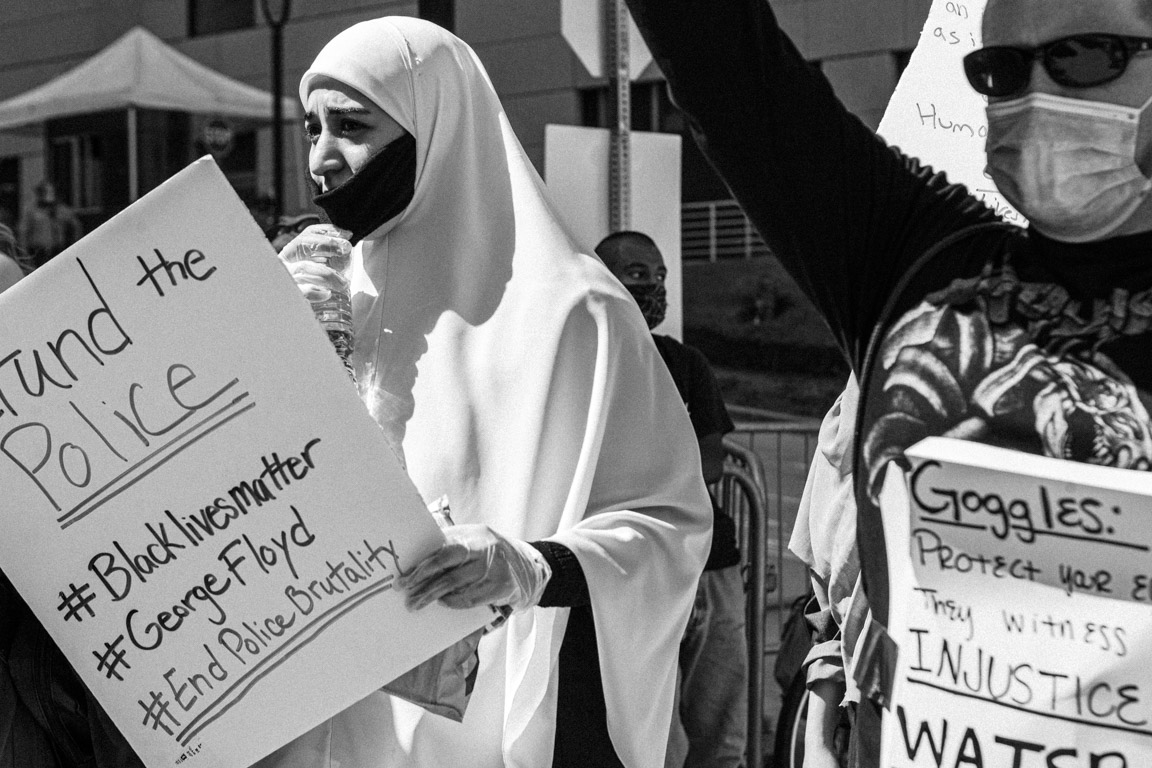 fund the
Police
#Blacklivesmatter
#GeorgeFloyd
#End Police Brutality
an
as i
Huma
lives
Goggles:
PROTECT your E
They witness
INJUSTICE
WATER